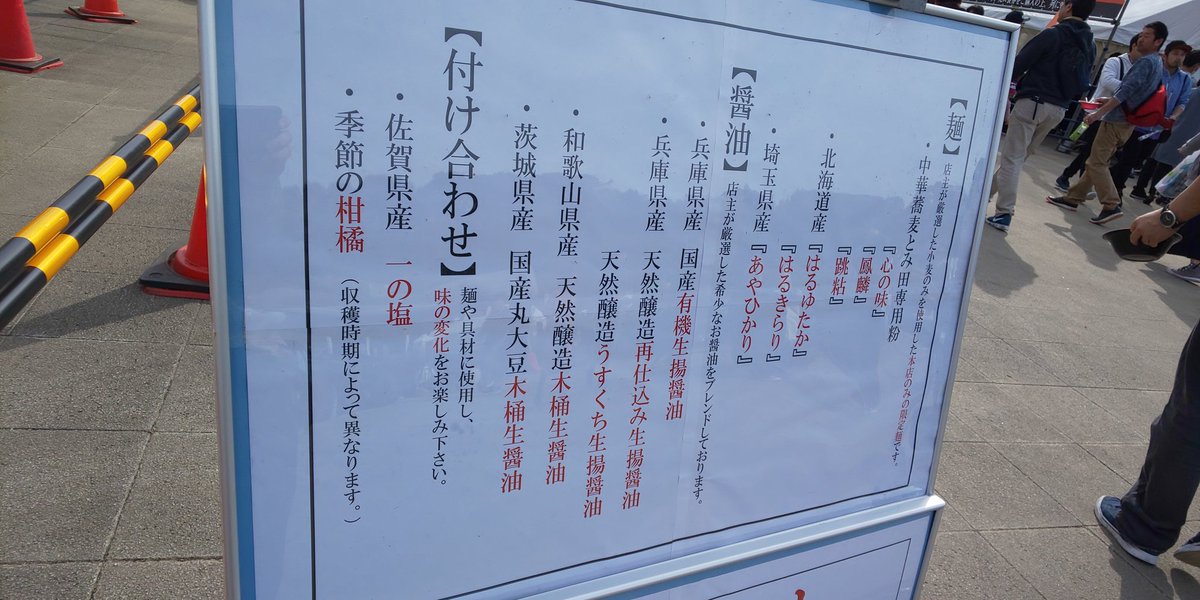 【麺】 店主が厳選した小麦のみを使用した本店のみの限定麺です。
・中華蕎麦とみ田専用粉
『心の味』
『鳳麟』
『跳粘』
・北海道産 『はるゆたか』
『はるきらり』
・埼玉県産 『あやひかり』
【醤油】 店主が厳選した希少なお醤油をブレンドしております。
・兵庫県産 国産有機生揚醤油
・兵庫県産 天然醸造再仕込み生揚醤油
天然醸造うすくち生揚醤油
・和歌山県産 天然醸造木桶生醤油
・茨城県産 国産丸大豆木桶生醤油
【付け合わせ】 麺や具材に使用し、
味の変化をお楽しみ下さい。
・佐賀県産 一の塩
・季節の柑橘 (収穫時期によって異なります。)